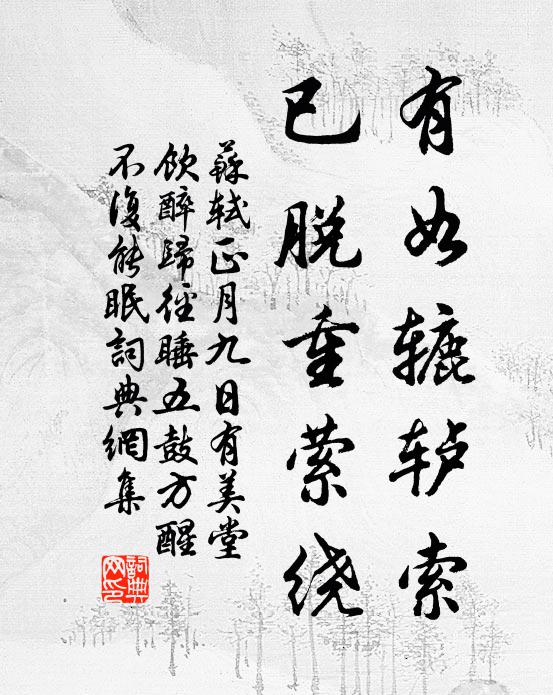 有如辘轳索
已脱重萦绕
蘇轼正月九日有美堂
饮醉歸徑睡五鼓方醒
不復能眠詞典網集
詞典
网印